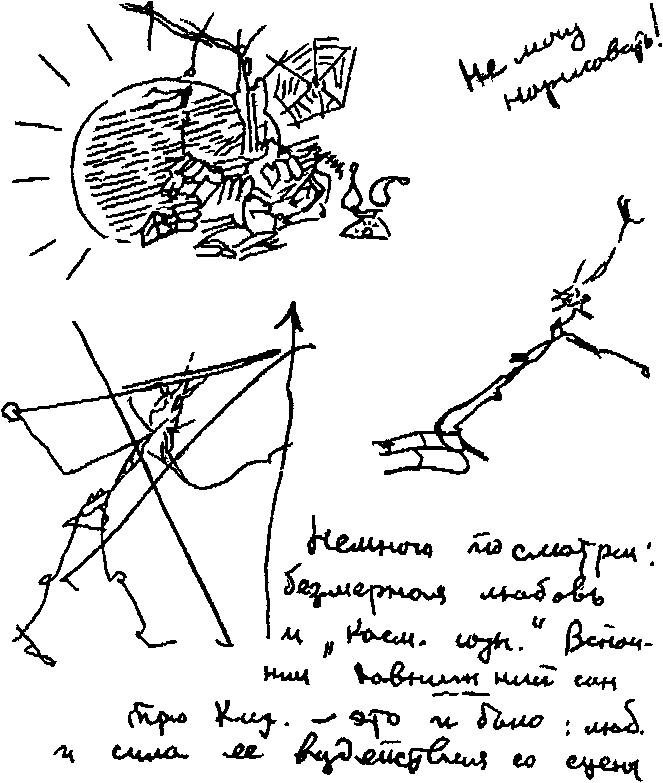 Не могу
нарисовать!
Немного посмотри:
безмерная любовь
и „Косм.
Вспом-
ний сон
про Киз. — это и было: люб.
и сила ее воздействия со сцены